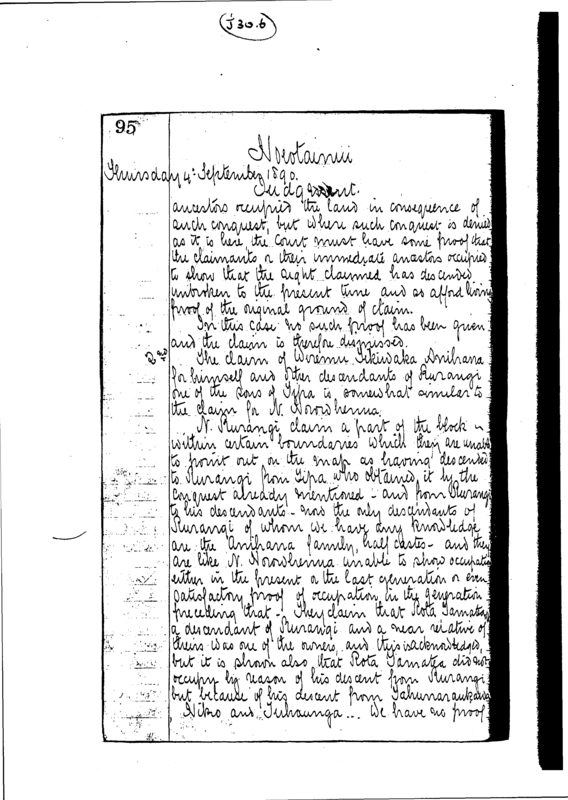 J30.b
95
Thursday 4: September 1890.
Judgment.
ancestors occupied the land in consequence of
such conquest, but where such conquest is denied
as it is here the Court must have some proof that
the claimants or their immediate ancestors occupied
to show that the right claimed has descended
unbroken to the present time and as afford living
proof of the original ground of claim.
In this case no such proof has been given
and the claim is therefore dismissed.
The claim of Wiremu Anihana
for himself and other descendants of Kurangi
one of the sons of Tipa is somewhat similar to
the claim for N. Horowhenua.
N. Kurangi claim a part of the block
within certain boundaries which they are unable
to point out on the map as having descended
to Kurangi from Tipa who obtained it by the
conquest already mentioned - and from Kurangi
to his descendants - now the only descendants of
Kurangi of whom we have any knowledge
are the Anihana family, half castes - and they
are like N. Horowhenua unable to show occupation
either in the present or the last generation or even
satisfactory proof of occupation in the generation
preceding that - They claim that Rota Tamatea
a descendant of Kurangi and a near relative of
theirs was one of the owners, and this is acknowledged,
but it is shown also, that Rota Tamatea did not
occupy by reason of his descent from Kurangi
but because of his descent from
and Tuhaunga... We have no proof